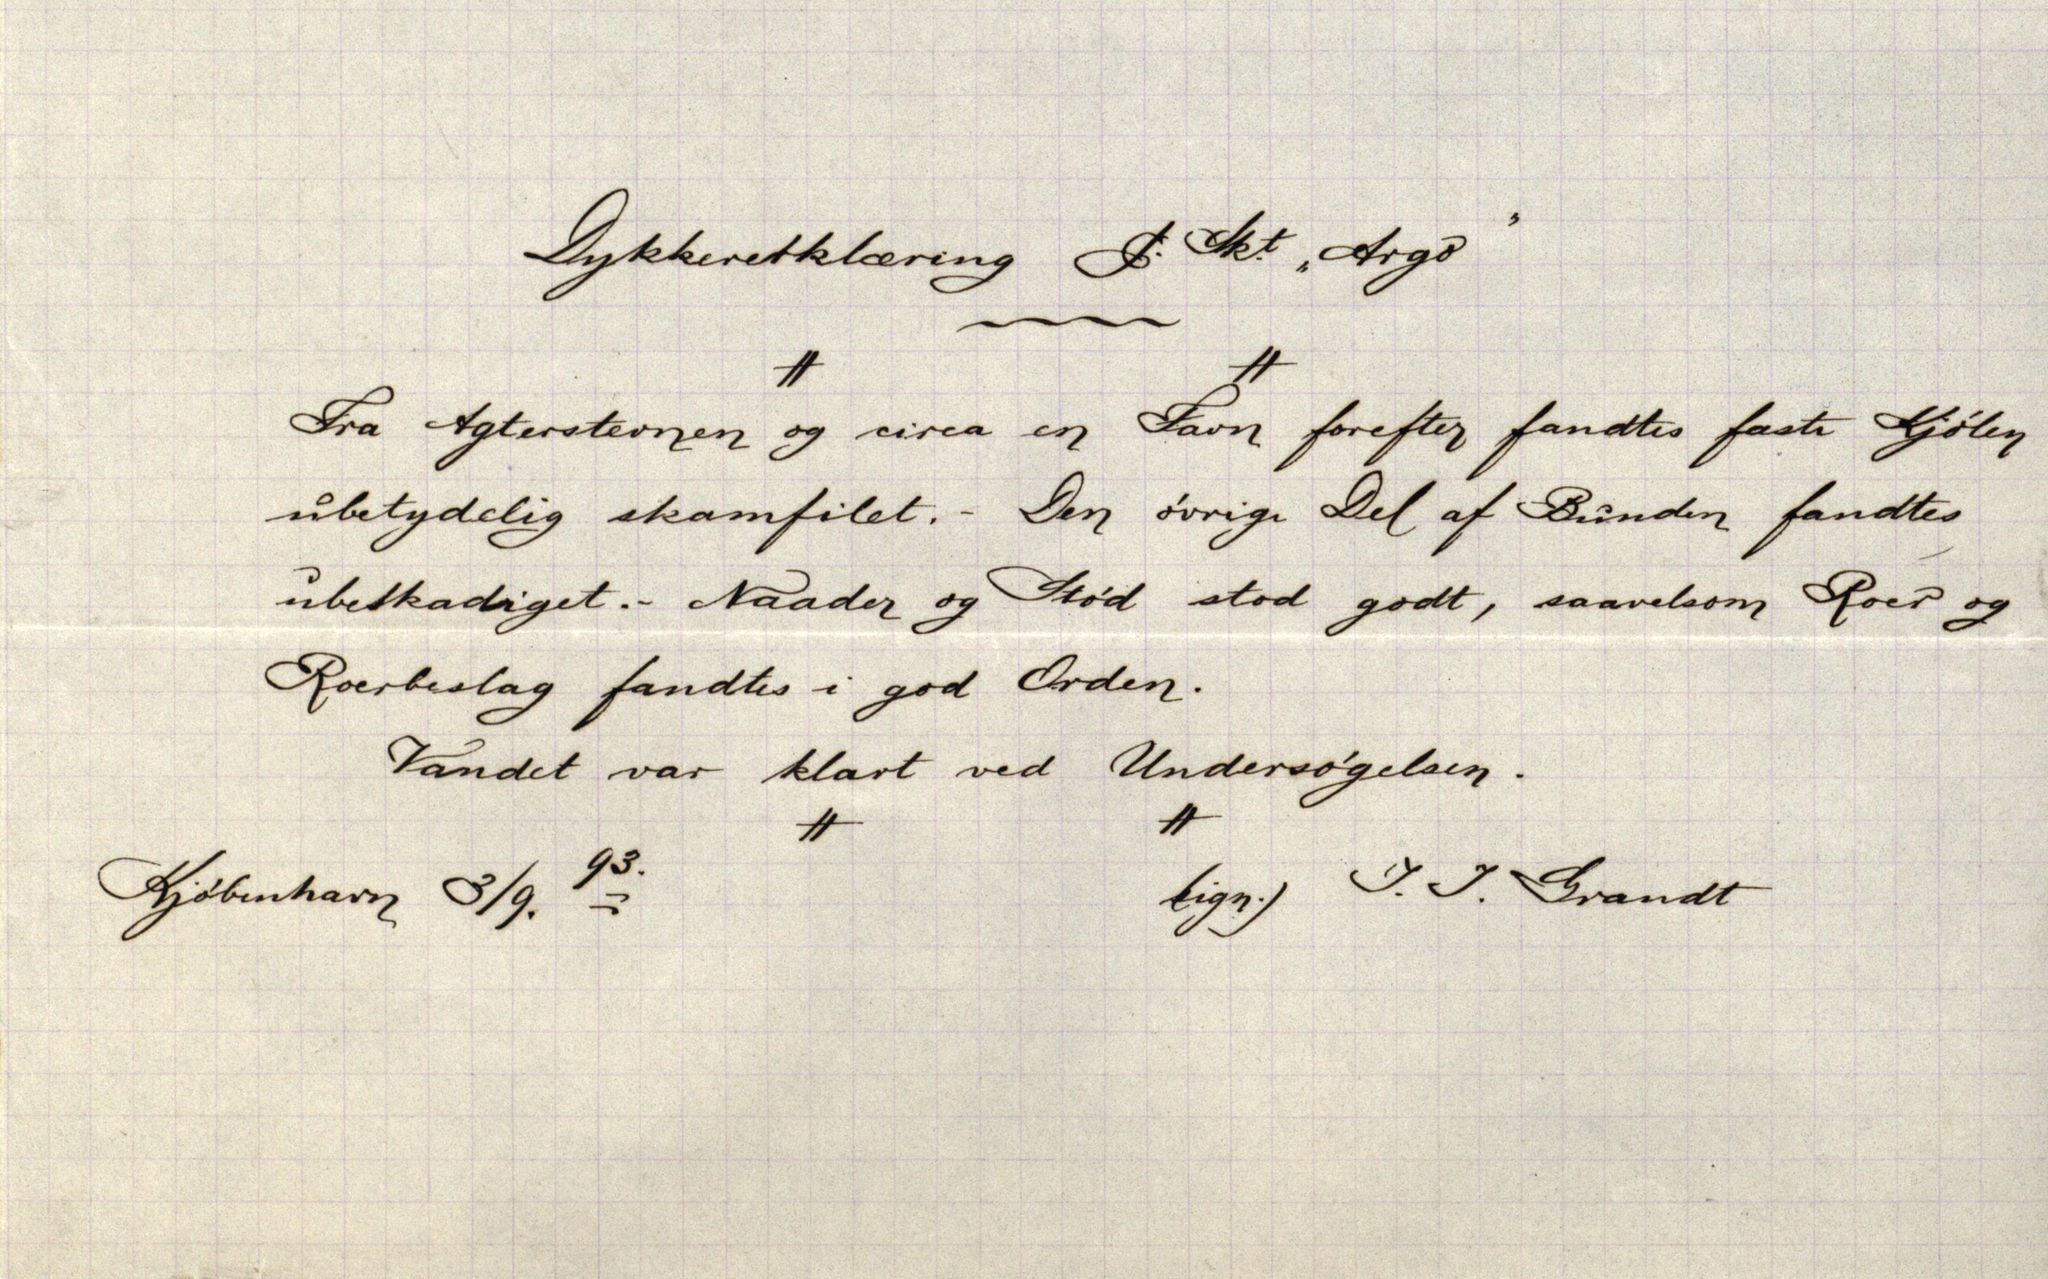 Dykkeretklæring J. Skt. „Argo"
Fra Agterstevnen og circa en Favn forefter fandtes faste Kjölen
ubetydelig skamfilet. - Den övrige Del af Bunden fandtes
ubeskadiget. - Naader og Stöd stod godt, saavelsom Roer og
Roerbeslag fandtes i god Orden.
Vandet var klart ved Undersögelsen.
Kjöbenhavn 3/9. 93.
(sign.) J. J. Grandt